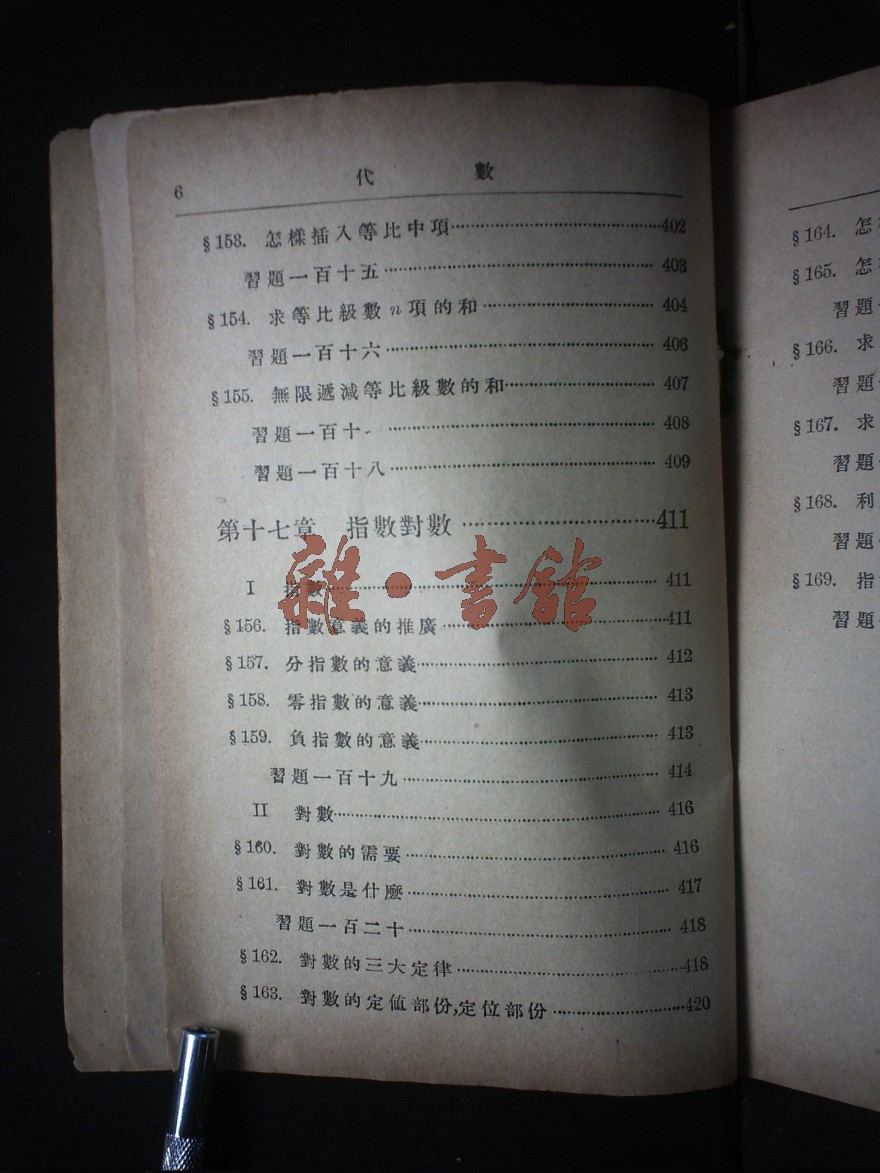 6 代數
§153. 怎樣插入等比中項 402
習題一百十五 403
§154. 求等比級數n項的和 404
習題一百十六 406
§155. 無限遞減等比級數的和 407
習題一百十 408
習題一百十八 409
第十七章 指數對數 411
I 指數 411
§156. 指數意義的推廣 411
§157. 分指數的意義 412
§158. 零指數的意義 413
§159. 負指數的意義 413
習題一百十九 414
II 對數 416
§160. 對數的需要 416
§161. 對數是什麼 417
習題一百二十 418
§162. 對數的三大定律 418
§163. 對數的定值部份,定位部份 420
雜·書館
§164. 怎
§165. 怎
習題
§166. 求
習題
§167. 求
習題
§168. 利
習題
§169. 指
習題